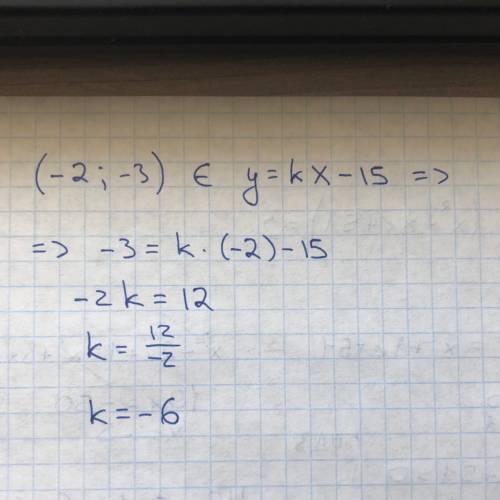 (-2; -3) ∈ y = kx - 15 =>
=> -3 = k · (-2) - 15
-2k = 12
k = 12/-2
k = -6